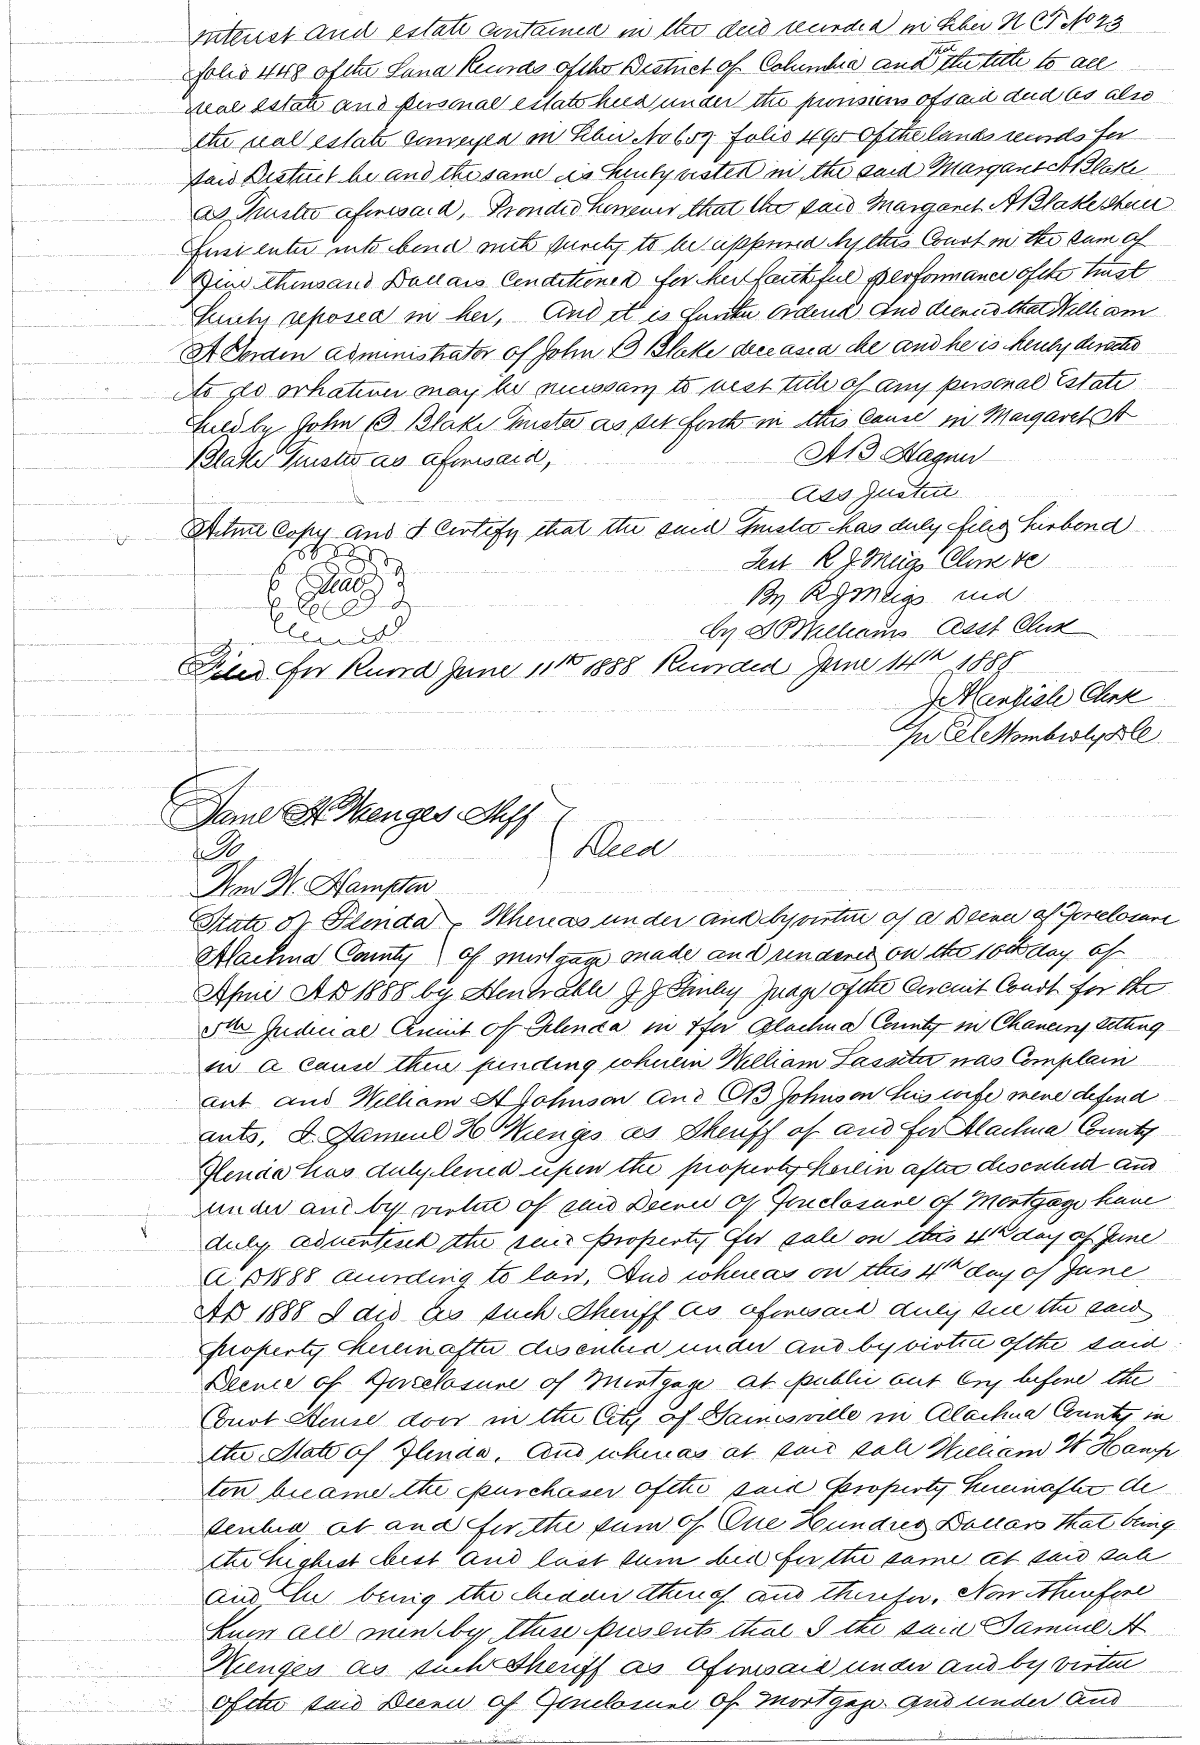 interest and estate contained in the deed recorded in Liber N C T No 23
folio 448 of the Land Records of the District of Columbia and that the title to all
real estate and personal estate held under the provisions of said deed as also
the real estate conveyed in Liber No 659 folio 495 of the lands records for
said District be and the same is hereby vested in the said Margaret A Blake
as Trustee aforesaid, Provided however that the said Margaret A Blake shall
first enter into bond with surety to be approved by this Court in the sum of
Five thousand Dollars Conditioned for her faithful performance of the trust
hereby reposed in her, And it is further ordered and decreed that William
A Gordon administrator of John B Blake deceased be and he is hereby directed
to do whatever may be necessary to vest title of any personal Estate
held by John B Blake Trustee as set forth in this Cause in Margaret A
Blake Trustee as aforesaid,
A B Hagner
Ass Justice
A true Copy and I Certify that the said Trustee has duly filed her bond
Seal
Test R J Meigs Clerk &c
By R J Meigs
by Williams Asst Clerk
Filed for Record June 11th 1888 Recorded June 14th 1888
Clerk
Samel H Wienges Shff
To
Deed
Wm W. Hampton
State of Florida } Whereas under and by virtue of a Decree of Foreclosure
Alachua County } of mortgage made and rendered on the 10th day of
April AD 1888 by Honorable J J Finley Judge of the Circuit Court for the
5th Judicial Circuit of Florida in & for Alachua County in Chancery sitting
in a cause then pending wherein William Lassiter was Complain
ant and William A Johnson and C B Johnson his wife were defend
ants, I Samuel H Wienges as Sheriff of and for Alachua County
Florida has duly levied upon the property herein after described and
under and by virtue of said Decree of Foreclosure of Mortgage have
duly advertised the said property for sale on this 4th day of June
A D 1888 according to law, And whereas on this 4th day of June
AD 1888 I did as such Sheriff as aforesaid duly sell the said
property hereinafter described under and by virtue of the said
Decree of Foreclosure of Mortgage at public out cry before the
Court House door in the City of Gainesville in Alachua County in
the State of Florida, And whereas at said sale William W Hamp
ton became the purchaser of the said property hereinafter de
scribed at and for the sum of One Hundred Dollars that being
the highest best and last sum bid for the same at said sale
and he being the bidder thereof and therefor, Now therefore
Know all men by these presents that I the said Samuel H
Wienges as such Sheriff as aforesaid under and by virtue
of the said Decree of Foreclosure of Mortgage and under and